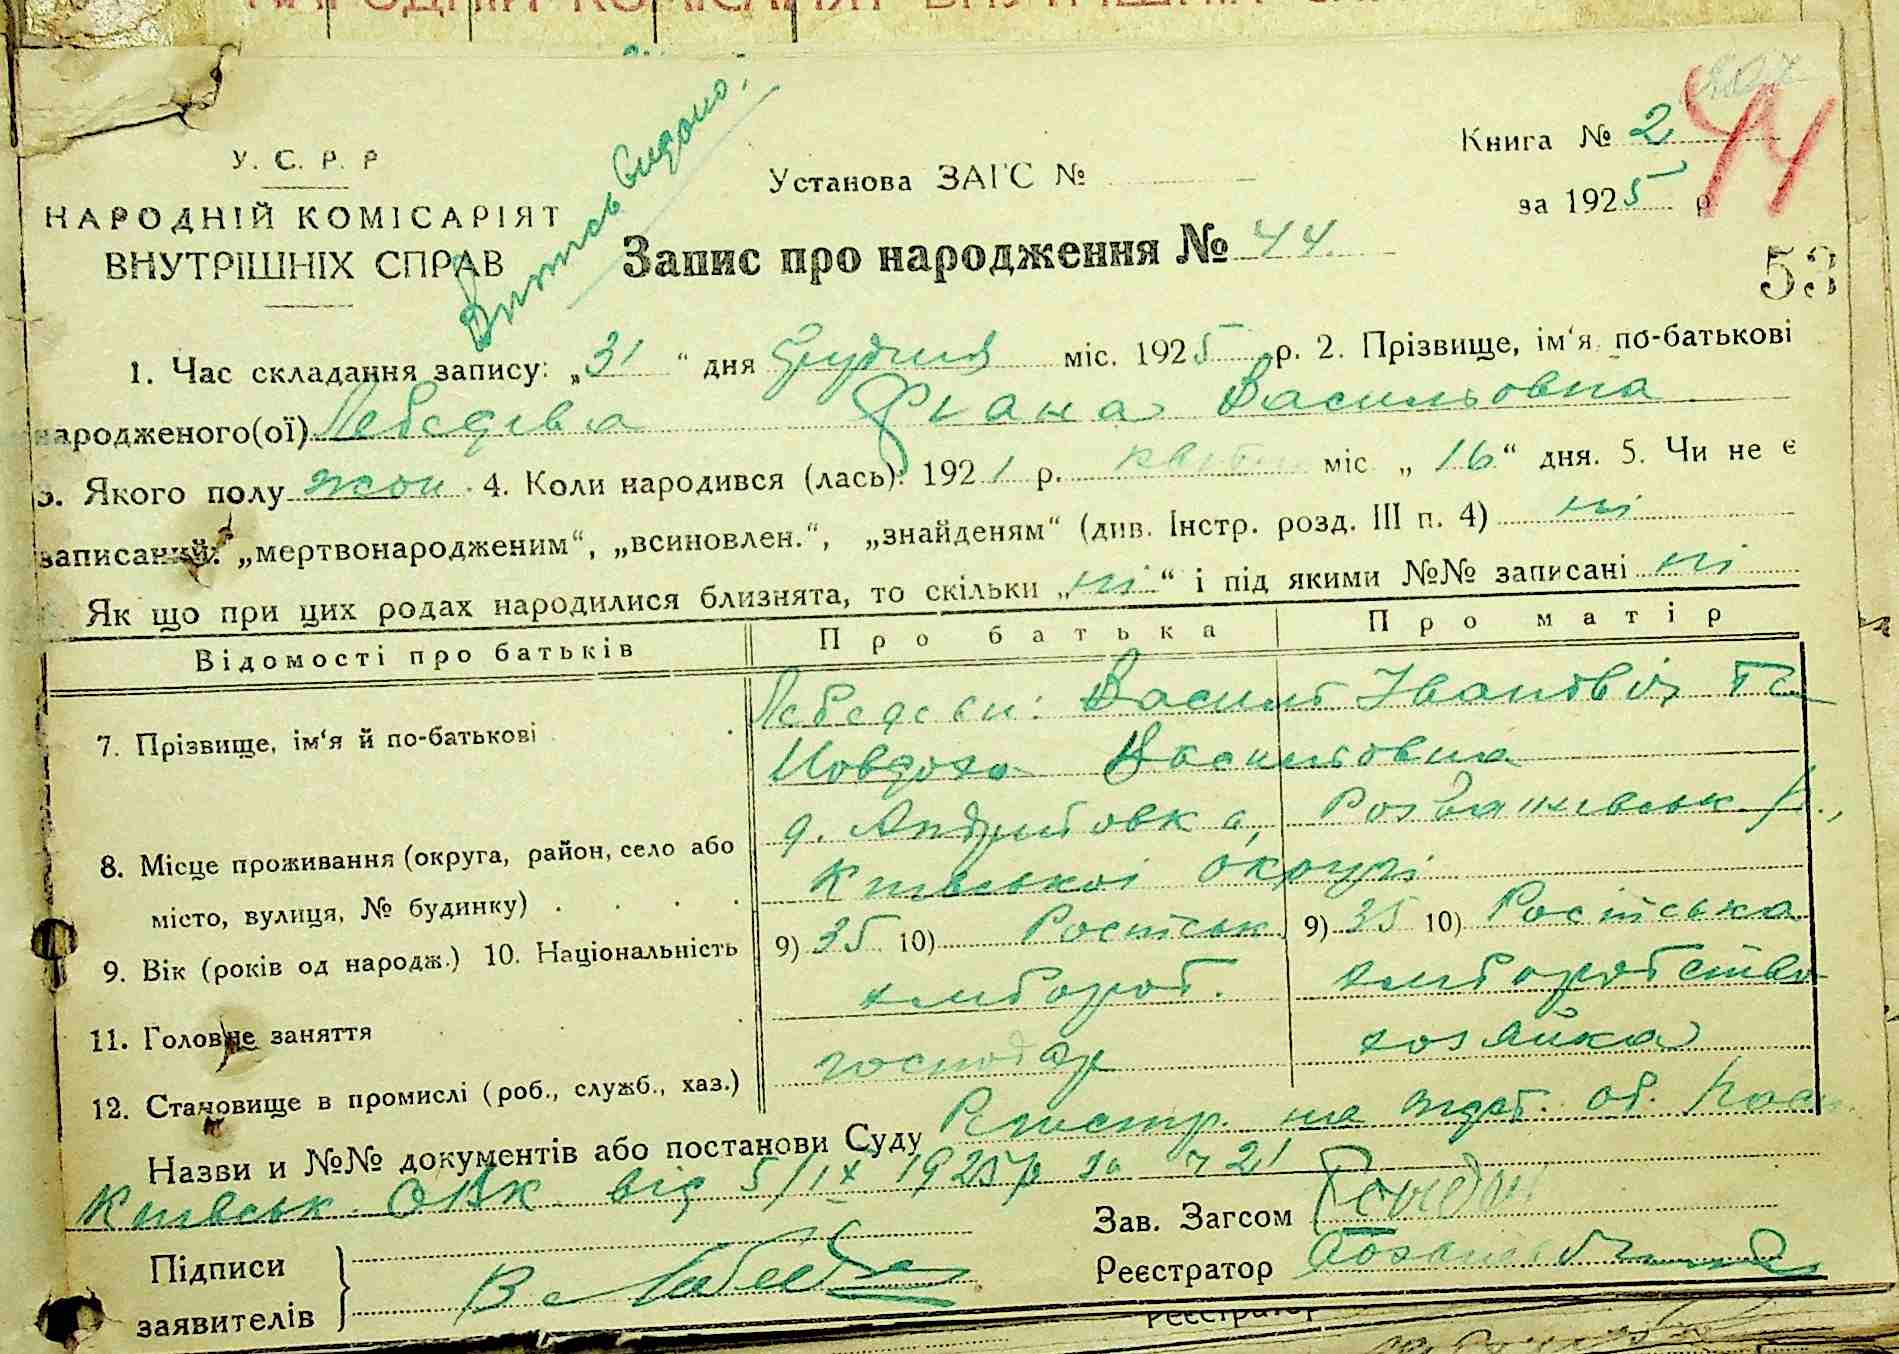 НАРОДНІЙ КОМІСАРІЯТ ВНУТРІШНІХ
У. С. Р. Р
НАРОДНІЙ КОМІСАРІЯТ
ВНУТРІШНІХ СПРАВ
Випись видано.
Установа ЗАГС №
Книга № 2
за 1925 р
44
Запис про народження № 44.
53
1. Час складання запису: „31“ дня Грудня міс. 1925 р. 2. Прізвище, ім‘я по-батькові
народженого(ої) Лебедєва Фіана Васильовна
3. Якого полу жон. 4. Коли народився (лась): 1921 р. квітн міс „16“ дня. 5. Чи не є
записаний: „мертвонародженим“, „всиновлен.“, „знайденям“ (див. Інстр. розд. III п. 4) ні
Як що при цих родах народилися близнята, то скільки „ні“ і під якими №№ записані ні
Відомості про батьків Про батька Про матір
7. Прізвище, ім‘я й по-батькові
Лебедєви: Василь Іванович та
Иовдоха
8. Місце проживання (округа, район, село або
місто, вулиця, № будинку)
д. Андріївка, Розважівськ. р.,
Київської округи
9. Вік (років од народж.) 10. Національність 9) 35 10) Російськ 9) 35 10) Російська
11. Головне заняття хлібороб. хліборобство
12. Становище в промислі (роб., служб., хаз.) господар хозяйка
Назви и №№ документів або постанови Суду Реєстр. на підст. об.
Київськ. ОВК від 5/IX 1925р за ч 21
Підписи
заявителів
В Лебеде
Зав. Загсом
Реєстратор
Реєстратор